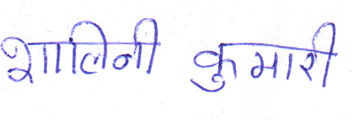 शालिनी कुमारी